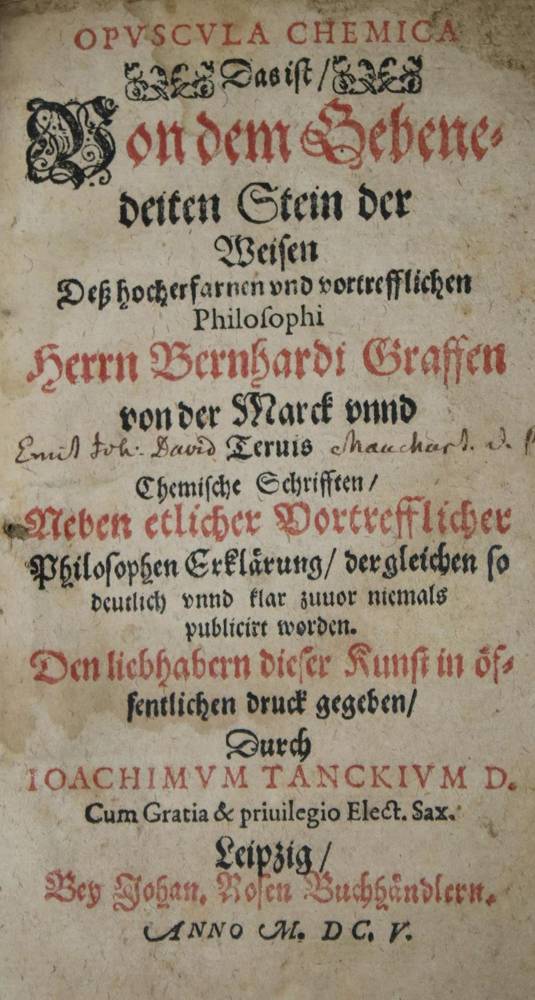 OPVSCVLA CHEMICA
Das ist /
Von dem Gebene-
deiten Stein der
Weisen
Deß hocherfarnen vnd vortrefflichen
Philosophi
Herrn Bernhardi Graffen
von der Marck vnnd
Emit Joh. David Teruis Mauchart.
Chemische Schrifften /
Neben etlicher Vortrefflicher
Philosophen Erklärung / dergleichen so
deutlich vnnd klar zuuor niemals
publicirt worden.
Den liebhabern dieser Kunst in öf-
fentlichen druck gegeben /
Durch
IOACHIMVM TANCKIVM D.
Cum Gratia & priuilegio Elect. Sax.
Leipzig /
Bey Johan. Rosen Buchhändlern.
ANNO M. DC. V.